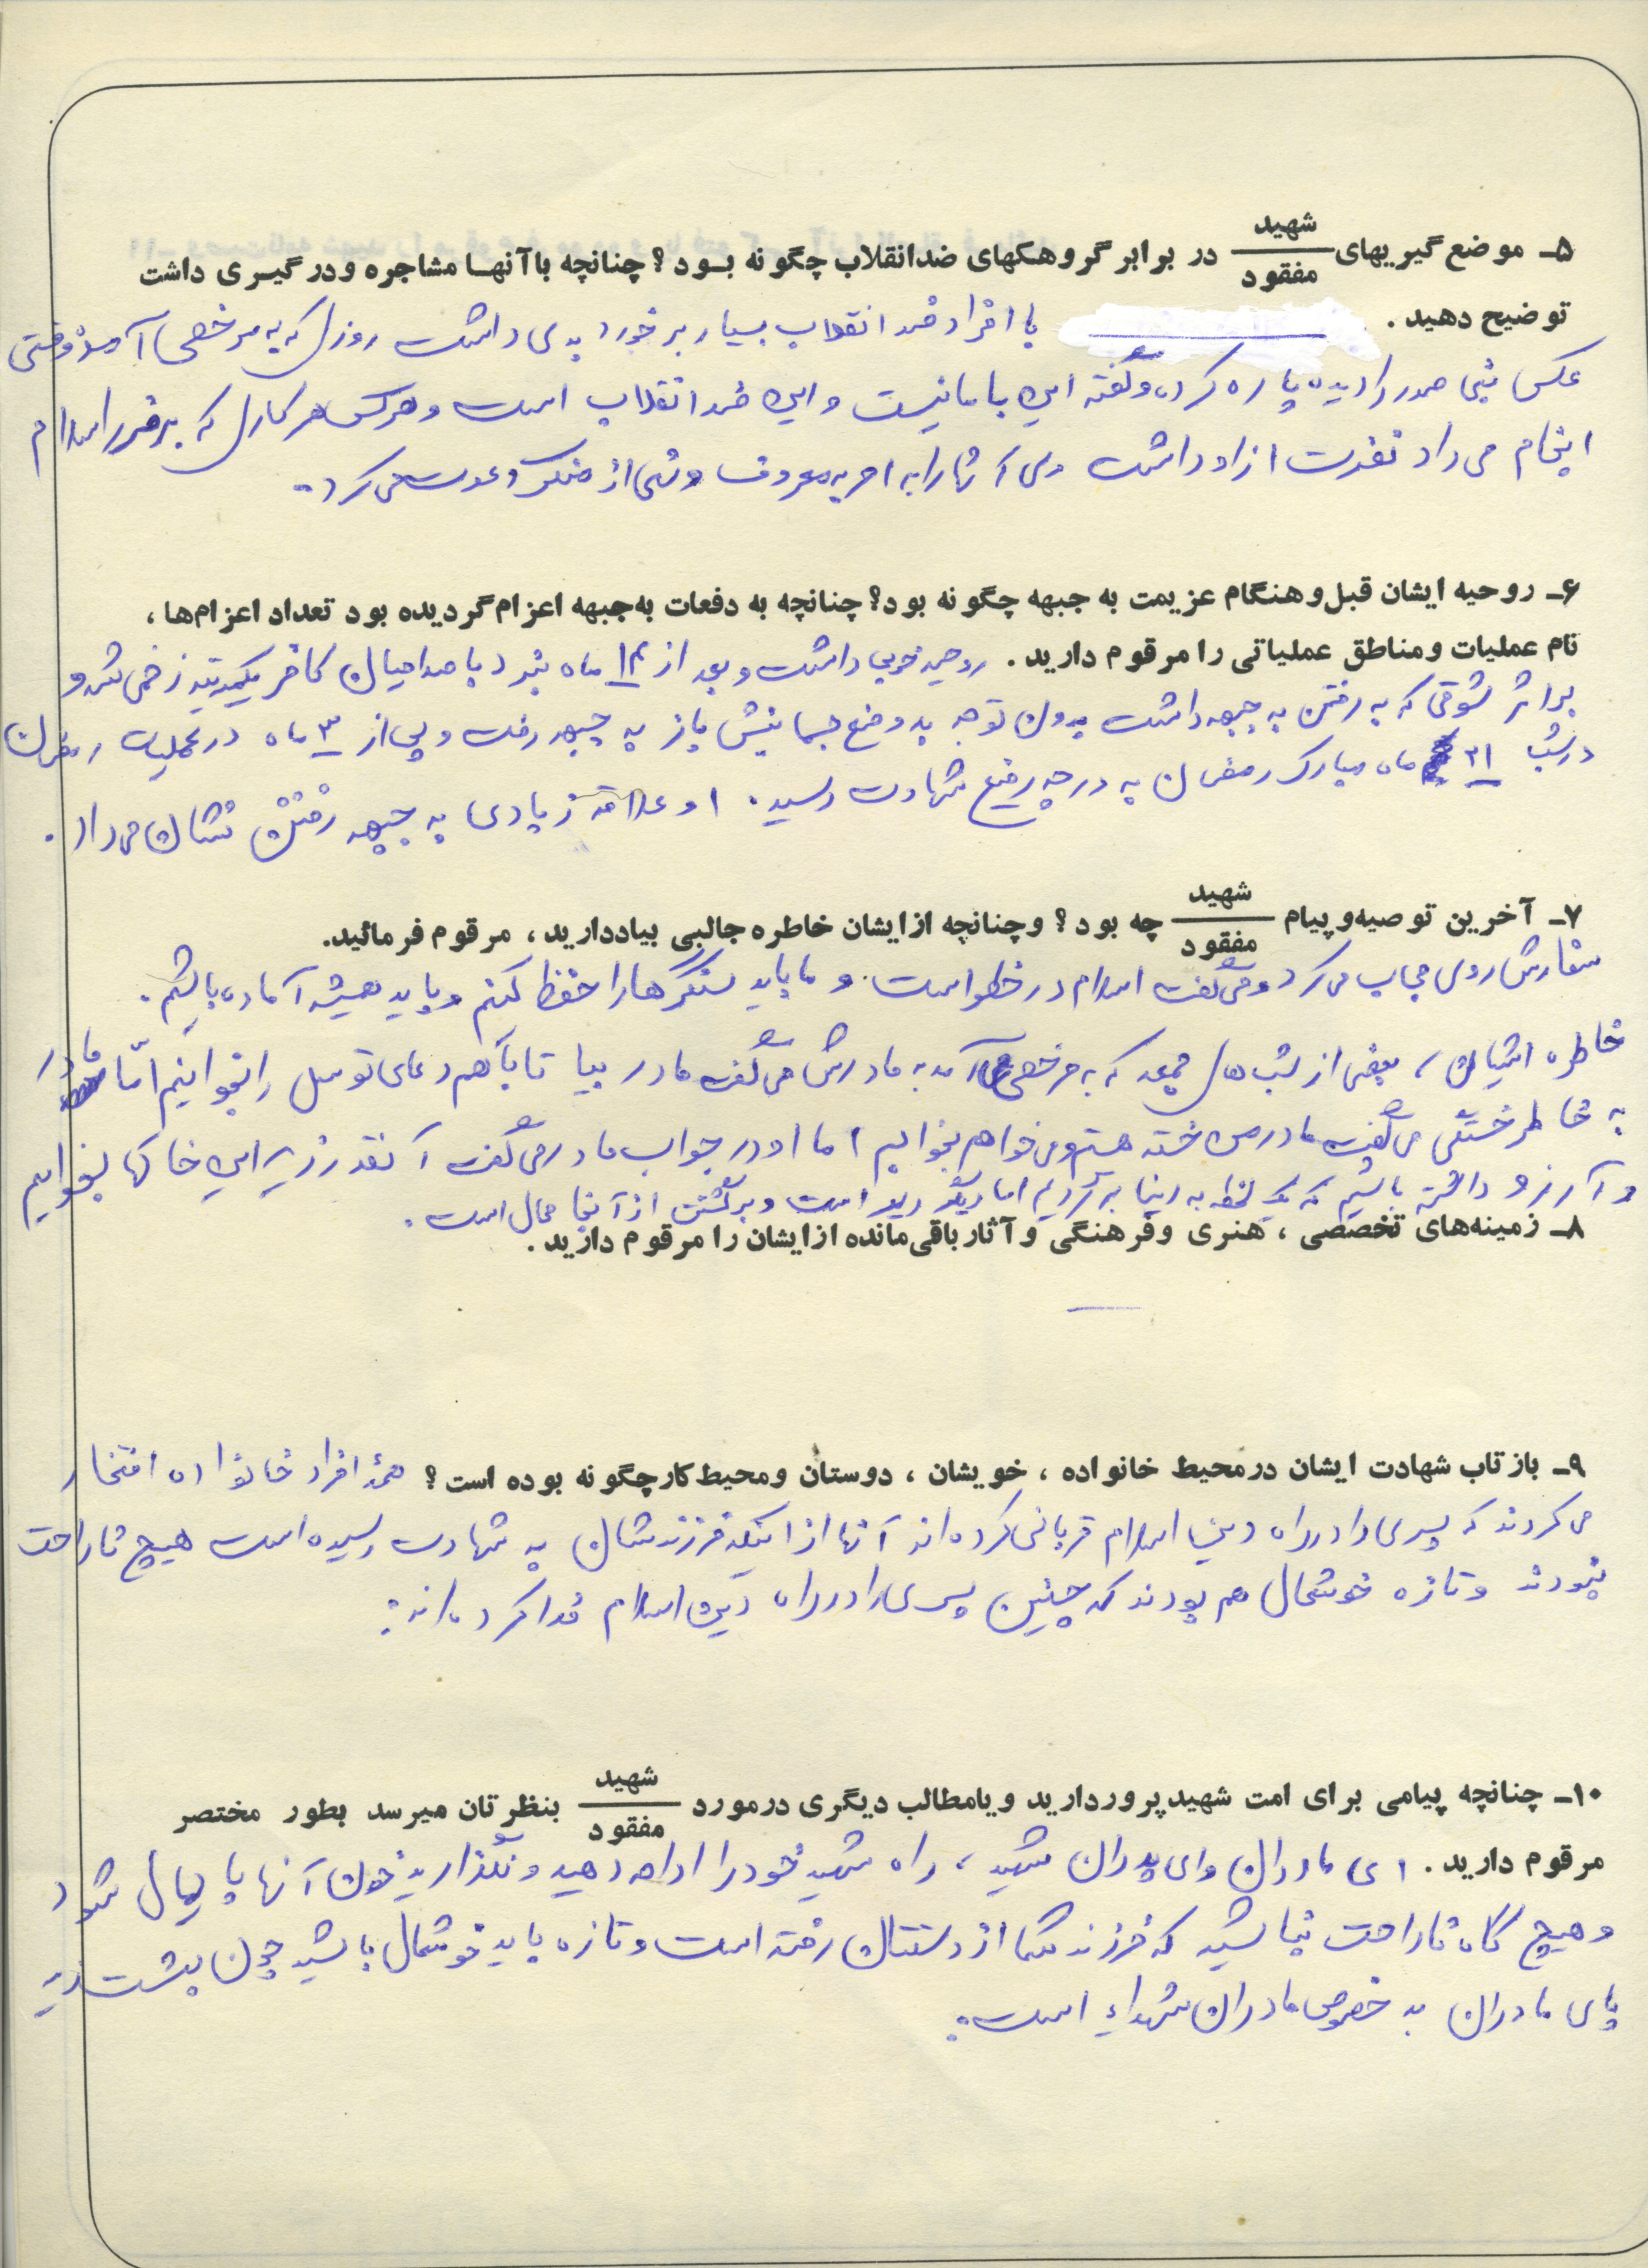 ۵ـ موضع‌گیریهای شهید / مفقود در برابر گروهکهای ضدانقلاب چگونه بود؟ چنانچه باآنها مشاجره ودرگیری داشت
توضیح دهید. با افراد ضد انقلاب بسیار برخورد بدی داشت روزی که به مرخصی آمد وقتی
عکس بنی صدر را دیده پاره کرد، و گفته این با ما نیست و این ضد انقلاب است و هرکس هر کاری که بر ضرر اسلام
انجام می‌داد نفرت از او داشت و آنها را به امر به معروف و نهی از منکر دعوت می‌کرد.
۶ـ روحیه ایشان قبل‌وهنگام عزیمت به جبهه چگونه بود؟ چنانچه به دفعات به‌جبهه اعزام‌گردیده بود تعداد اعزام‌ها،
نام عملیات ومناطق عملیاتی را مرقوم دارید. روحیه خوبی داشت و بعد از ماه نبرد با صدامیان کافر زخمی شد و
بر اثر شوقی که به رفتن به جبهه داشت بدون توجه به وضع جسمانیش باز به جبهه رفت و پس از ۳ ماه در عملیات رمضان
در شب ۲۱ ماه مبارک رمضان به درجه رفیع شهادت رسید. او علاقه زیادی به جبهه رفتن نشان می‌داد.
۷ـ آخرین توصیه‌وپیام شهید / مفقود چه بود؟ وچنانچه ازایشان خاطره جالبی بیاددارید، مرقوم فرمائید.
سفارش روی حجاب می‌کرد و می‌گفت اسلام در خطر است. و ما باید سنگرها را حفظ کنیم و باید همیشه آماده باشیم.
خاطره ایشان، بعضی از شب‌های جمعه که به مرخصی آمد به مادرش می‌گفت مادر بیا تا با هم دعای توسل را بخوانیم امّا مادر
به خاطر خستگی می‌گفت مادر من خسته هستم و می‌خواهم بخوابم اما او در جواب مادر می‌گفت آنقدر زیر این خاکها بخوابیم
و آرزو داشته باشیم که یک لحظه به دنیا برگردیم اما دیگر دیر است و برگشتن از آنجا محال است.
۸ـ زمینه‌های تخصصی، هنری وفرهنگی وآثارباقی‌مانده ازایشان را مرقوم دارید.
۹ـ بازتاب شهادت ایشان درمحیط خانواده، خویشان، دوستان ومحیط‌کارچگونه بوده است؟ همهٔ افراد خانواده افتخار
می‌کردند که پسری را در راه دین اسلام قربانی کرده‌اند آنها از اینکه فرزندشان به شهادت رسیده است هیچ ناراحت
نبودند و تازه خوشحال هم بودند که چنین پسری را در راه دین اسلام فدا کرده‌اند.
۱۰ـ چنانچه پیامی برای امت شهیدپروردارید ویامطالب دیگری درمورد شهید / مفقود بنظرتان میرسد بطور مختصر
مرقوم دارید. ای مادران و ای پدران شهید، راه شهید خود را ادامه دهید و نگذارید خون آنها پایمال شود
و هیچ گاه ناراحت نباشید که فرزند شما از دستتان رفته است و تازه باید خوشحال باشید چون بهشت زیر
پای مادران به خصوص مادران شهداء است.